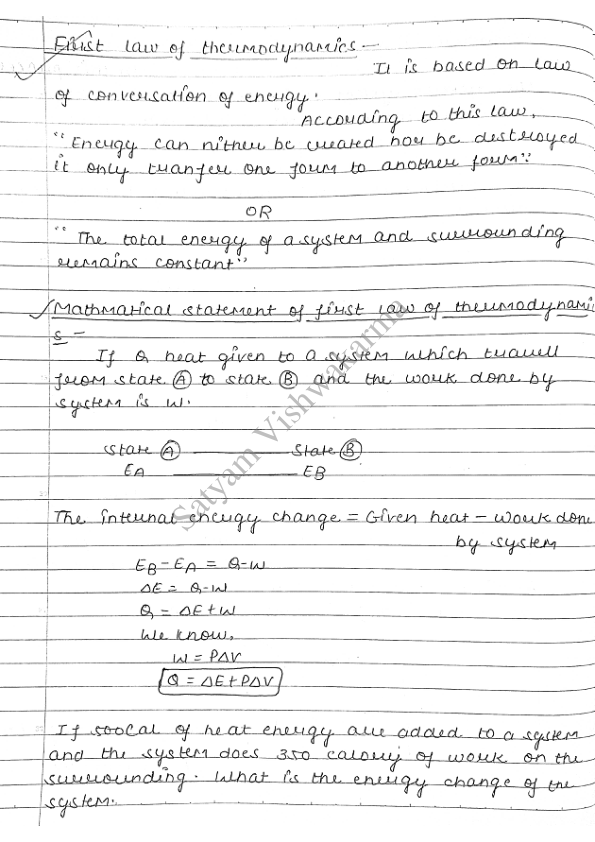 First law of thermodynamics -
It is based on law
of conversation of energy.
According to this law,
"Energy can nither be created nor be destroyed
it only tranfer one form to another form"
OR
"The total energy of a system and surrounding
remains constant"
Mathmatical statement of first law of thermodynami
s -
If Q heat given to a system which travell
from state A to state B and the work done by
system is W.
State A State B
EA EB
The internal energy change = Given heat - work done
by system
EB - EA = Q-W
ΔE = Q-W
Q = ΔE+W
We know,
W = PΔV
Q = ΔE+PΔV
If 500Cal of heat energy are added to a system
and the system does 350 calory of work on the
surrounding. What is the energy change of the
system.
Satyam Vishwakarma